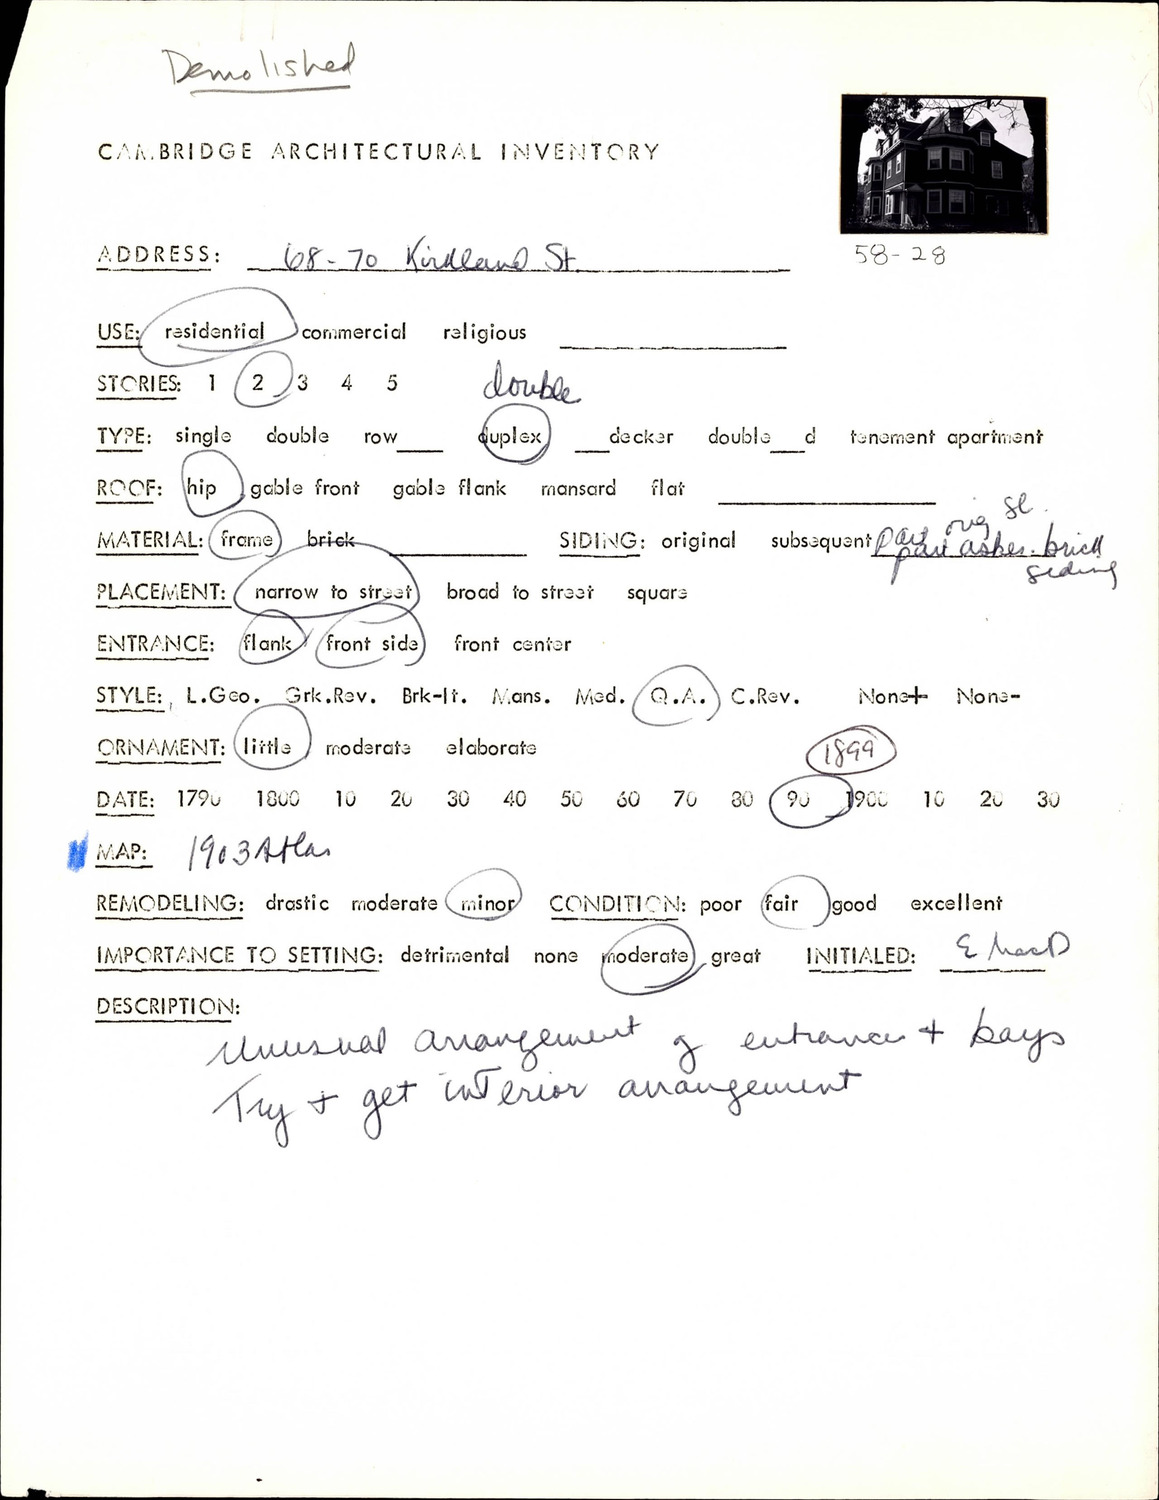 Demolished
CAMBRIDGE ARCHITECTURAL INVENTORY
ADDRESS: 68-70 Kirkland St.
58-28
USE: residential commercial religious
STORIES: 1 2 3 4 5 double
TYPE: single double row___ duplex ___decker double___d tenement apartment
ROOF: hip gable front gable flank mansard flat
MATERIAL: frame brick SIDING: original subsequent part orig sl.
part asbes. brick
siding
PLACEMENT: narrow to street broad to street square
ENTRANCE: flank front side front center
STYLE: L.Geo. Grk.Rev. Brk-It. Mans. Med. Q.A. C.Rev. None+ None-
ORNAMENT: little moderate elaborate 1899
DATE: 1790 1800 10 20 30 40 50 60 70 80 90 1900 10 20 30
MAP: 1903 Atlas
REMODELING: drastic moderate minor CONDITION: poor fair good excellent
IMPORTANCE TO SETTING: detrimental none moderate great INITIALED: E MacD
DESCRIPTION:
Unusual arrangement of entrances + bays
Try + get interior arrangement